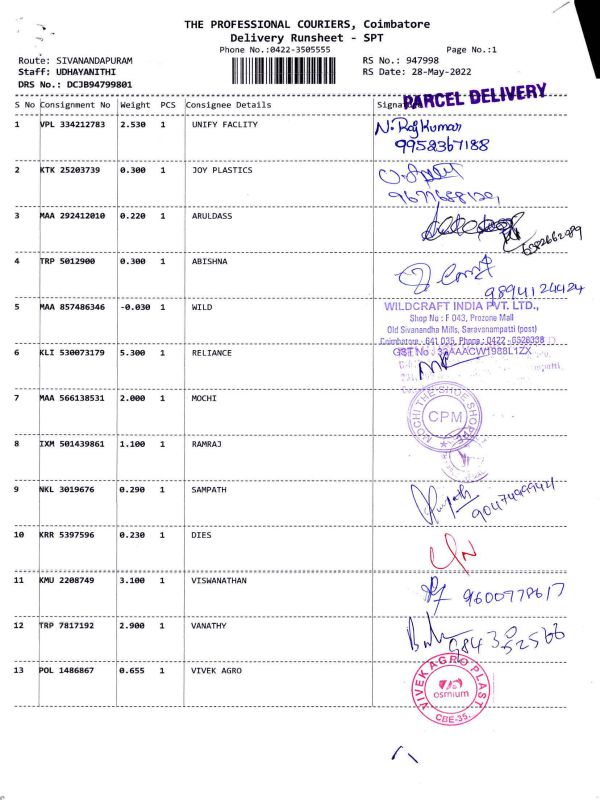 THE PROFESSIONAL COURIERS, Coimbatore
Delivery Runsheet - SPT
Phone No.:0422-3505555 Page No.:1
Route: SIVANANDAPURAM RS No.: 947998
Staff: UDHAYANITHI RS Date: 28-May-2022
DRS No.: DCJB94799801
PARCEL DELIVERY
S No Consignment No Weight PCS Consignee Details Signature
1 VPL 334212783 2.530 1 UNIFY FACLITY N. Raj Kumar
9958367188
2 KTK 25203739 0.300 1 JOY PLASTICS
3 MAA 292412010 0.220 1 ARULDASS
4 TRP 5012900 0.300 1 ABISHNA
9894124424
5 MAA 857486346 -0.030 1 WILD WILDCRAFT INDIA PVT. LTD.,
Shop No : F 043, Prozone Mall
Old Sivanandha Mills, Saravanampatti (post)
Coimbatore - 641 035, Phone : 0422 -
6 KLI 530073179 5.300 1 RELIANCE GST No : 33AAACW1988L1ZX
7 MAA 566138531 2.000 1 MOCHI MOCHI THE SHOE SHOPPE
CPM
8 IXM 501439861 1.100 1 RAMRAJ
9 NKL 3019676 0.290 1 SAMPATH
10 KRR 5397596 0.230 1 DIES
11 KMU 2208749 3.100 1 VISWANATHAN 9600778617
12 TRP 7817192 2.900 1 VANATHY
13 POL 1486867 0.655 1 VIVEK AGRO VIVEK AGRO PLAST
osmium
CBE-35.